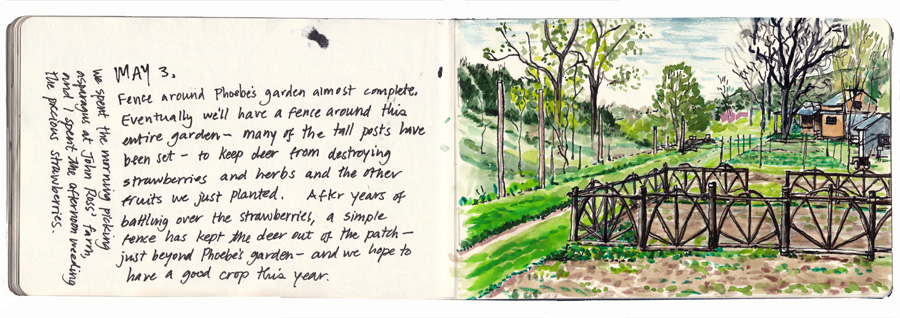 MAY 3.
Fence around Phoebe's garden almost complete.
Eventually we'll have a fence around this
entire garden – many of the tall posts have
been set – to keep deer from destroying
strawberries and herbs and the other
fruits we just planted. After years of
battling over the strawberries, a simple
fence has kept the deer out of the patch –
just beyond Phoebe's garden – and we hope to
have a good crop this year.
We spent the morning picking
asparagus at John Ross' farm,
and I spent the afternoon weeding
the precious strawberries.